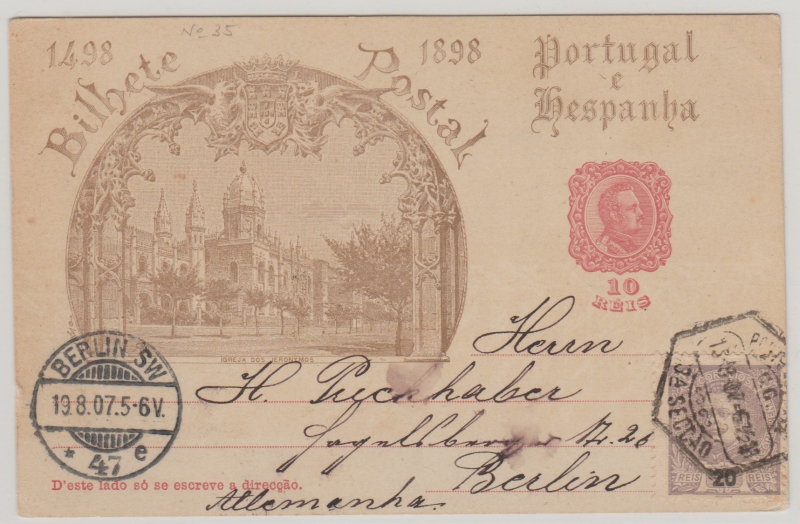 No 35
1498 1898
Bilhete Postal
Portugal
e
Hespanha
10
REIS
IGREJA DOS JERONYMOS
BERLIN SW
19.8.07.5-6V.
* 47 e
Herrn
H. Puckhaber
Hagelsberger Str. 26
Berlin
Allemanha.
D'este lado só se escreve a direcção.
34 SECÇÃO
REIS 20 REIS